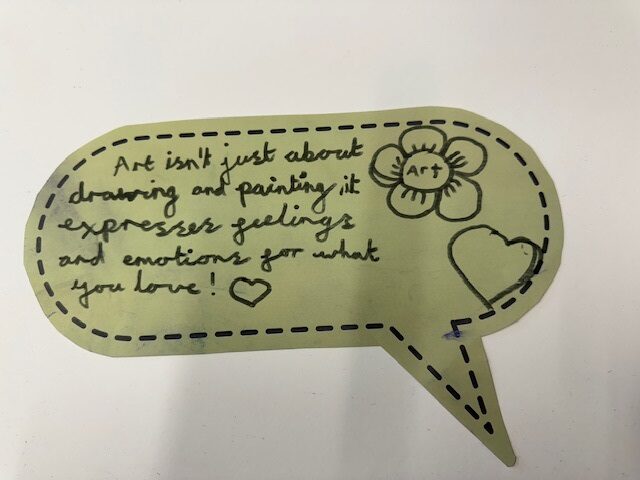 Art isn't just about
drawing and painting, it
expresses feelings
and emotions for what
you love!
Art